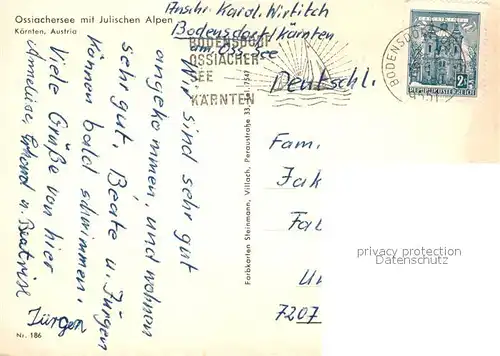 Ossiachersee mit Julischen Alpen
Kärnten, Austria
Anschr. Karol. Wirtitch
Bodensdorf/Kärnten
am Oss. See
BODENSDORF
OSSIACHER
SEE
KÄRNTEN
BODENSDORF
9551
REPUBLIK ÖSTERREICH
Deutschl.
Wir sind sehr gut
angekommen, und wohnen
sehr gut. Beate u. Jürgen
können bald schwimmen.
Viele Grüße von hier
Anneliese, Erhard u. Beatrix
Jürgen
Farbkarten Steinmann, Villach, Peraustraße 33, Tel. 7547
Fam.
Jak
Fa
Un
7207
privacy protection
Datenschutz
Nr. 186